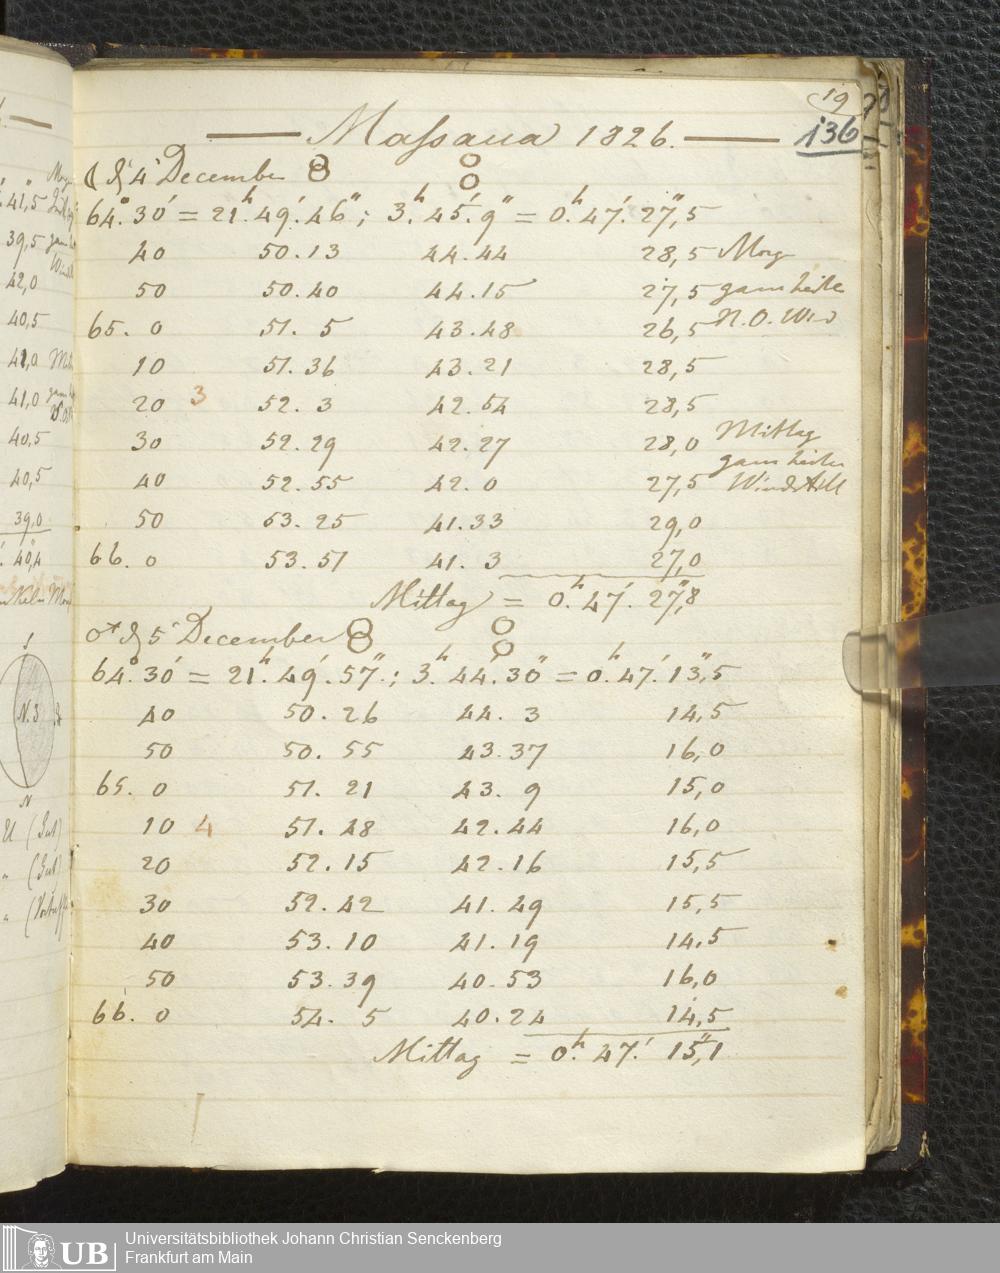 19
136
Massaua 1826.
☾ d 4 December
64°. 30' = 21h. 49'. 46"; 3h. 45'. 9" = 0h. 47'. 27,"5
40 50. 13 44. 44 28,5 Morg
50 50. 40 44. 15 27,5 ganz heiter
65. 0 51. 5 43. 48 26,5 N. O. Wind
10 51. 36 43. 21 28,5
20 3 52. 3 42. 54 28,5
30 52. 29 42. 27 28,0 Mittag
ganz heiter
40 52. 55 42. 0 27,5 Windstill
50 53. 25 41. 33 29,0
66. 0 53. 51 41. 3 27,0
Mittag = 0h. 47'. 27,"8
♂ d 5 December
64°. 30' = 21h. 49'. 57"; 3h. 44'. 30" = 0h. 47'. 13,"5
40 50. 26 44. 3 14,5
50 50. 55 43. 37 16,0
65. 0 51. 21 43. 9 15,0
10 4 51. 48 42. 44 16,0
20 52. 15 42. 16 15,5
30 52. 42 41. 49 15,5
40 53. 10 41. 19 14,5
50 53. 39 40. 53 16,0
66. 0 54. 5 40. 24 14,5
Mittag = 0h. 47'. 15,"1
41,5
39,5
42,0
40,5
41,0
41,0
40,5
40,5
39,0
40,4
N. 3
N
UB
Universitätsbibliothek Johann Christian Senckenberg
Frankfurt am Main